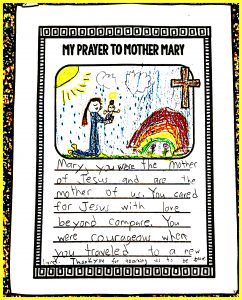 MY PRAYER TO MOTHER MARY
Mary, you were the mother
of Jesus and are the
mother of us. You cared
for Jesus with love
beyond compare. You
were courageous when
you traveled to a new
land. Thank you for teaching us to be